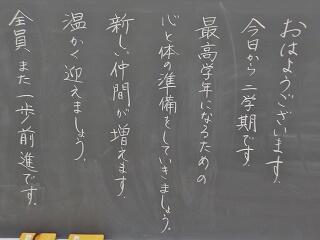 おはようございます。
今日から二学期です。
最高学年になるための
心と体の準備をしていきましょう。
新しい仲間が増えます。
温かく迎えましょう。
全員、また一歩前進です。